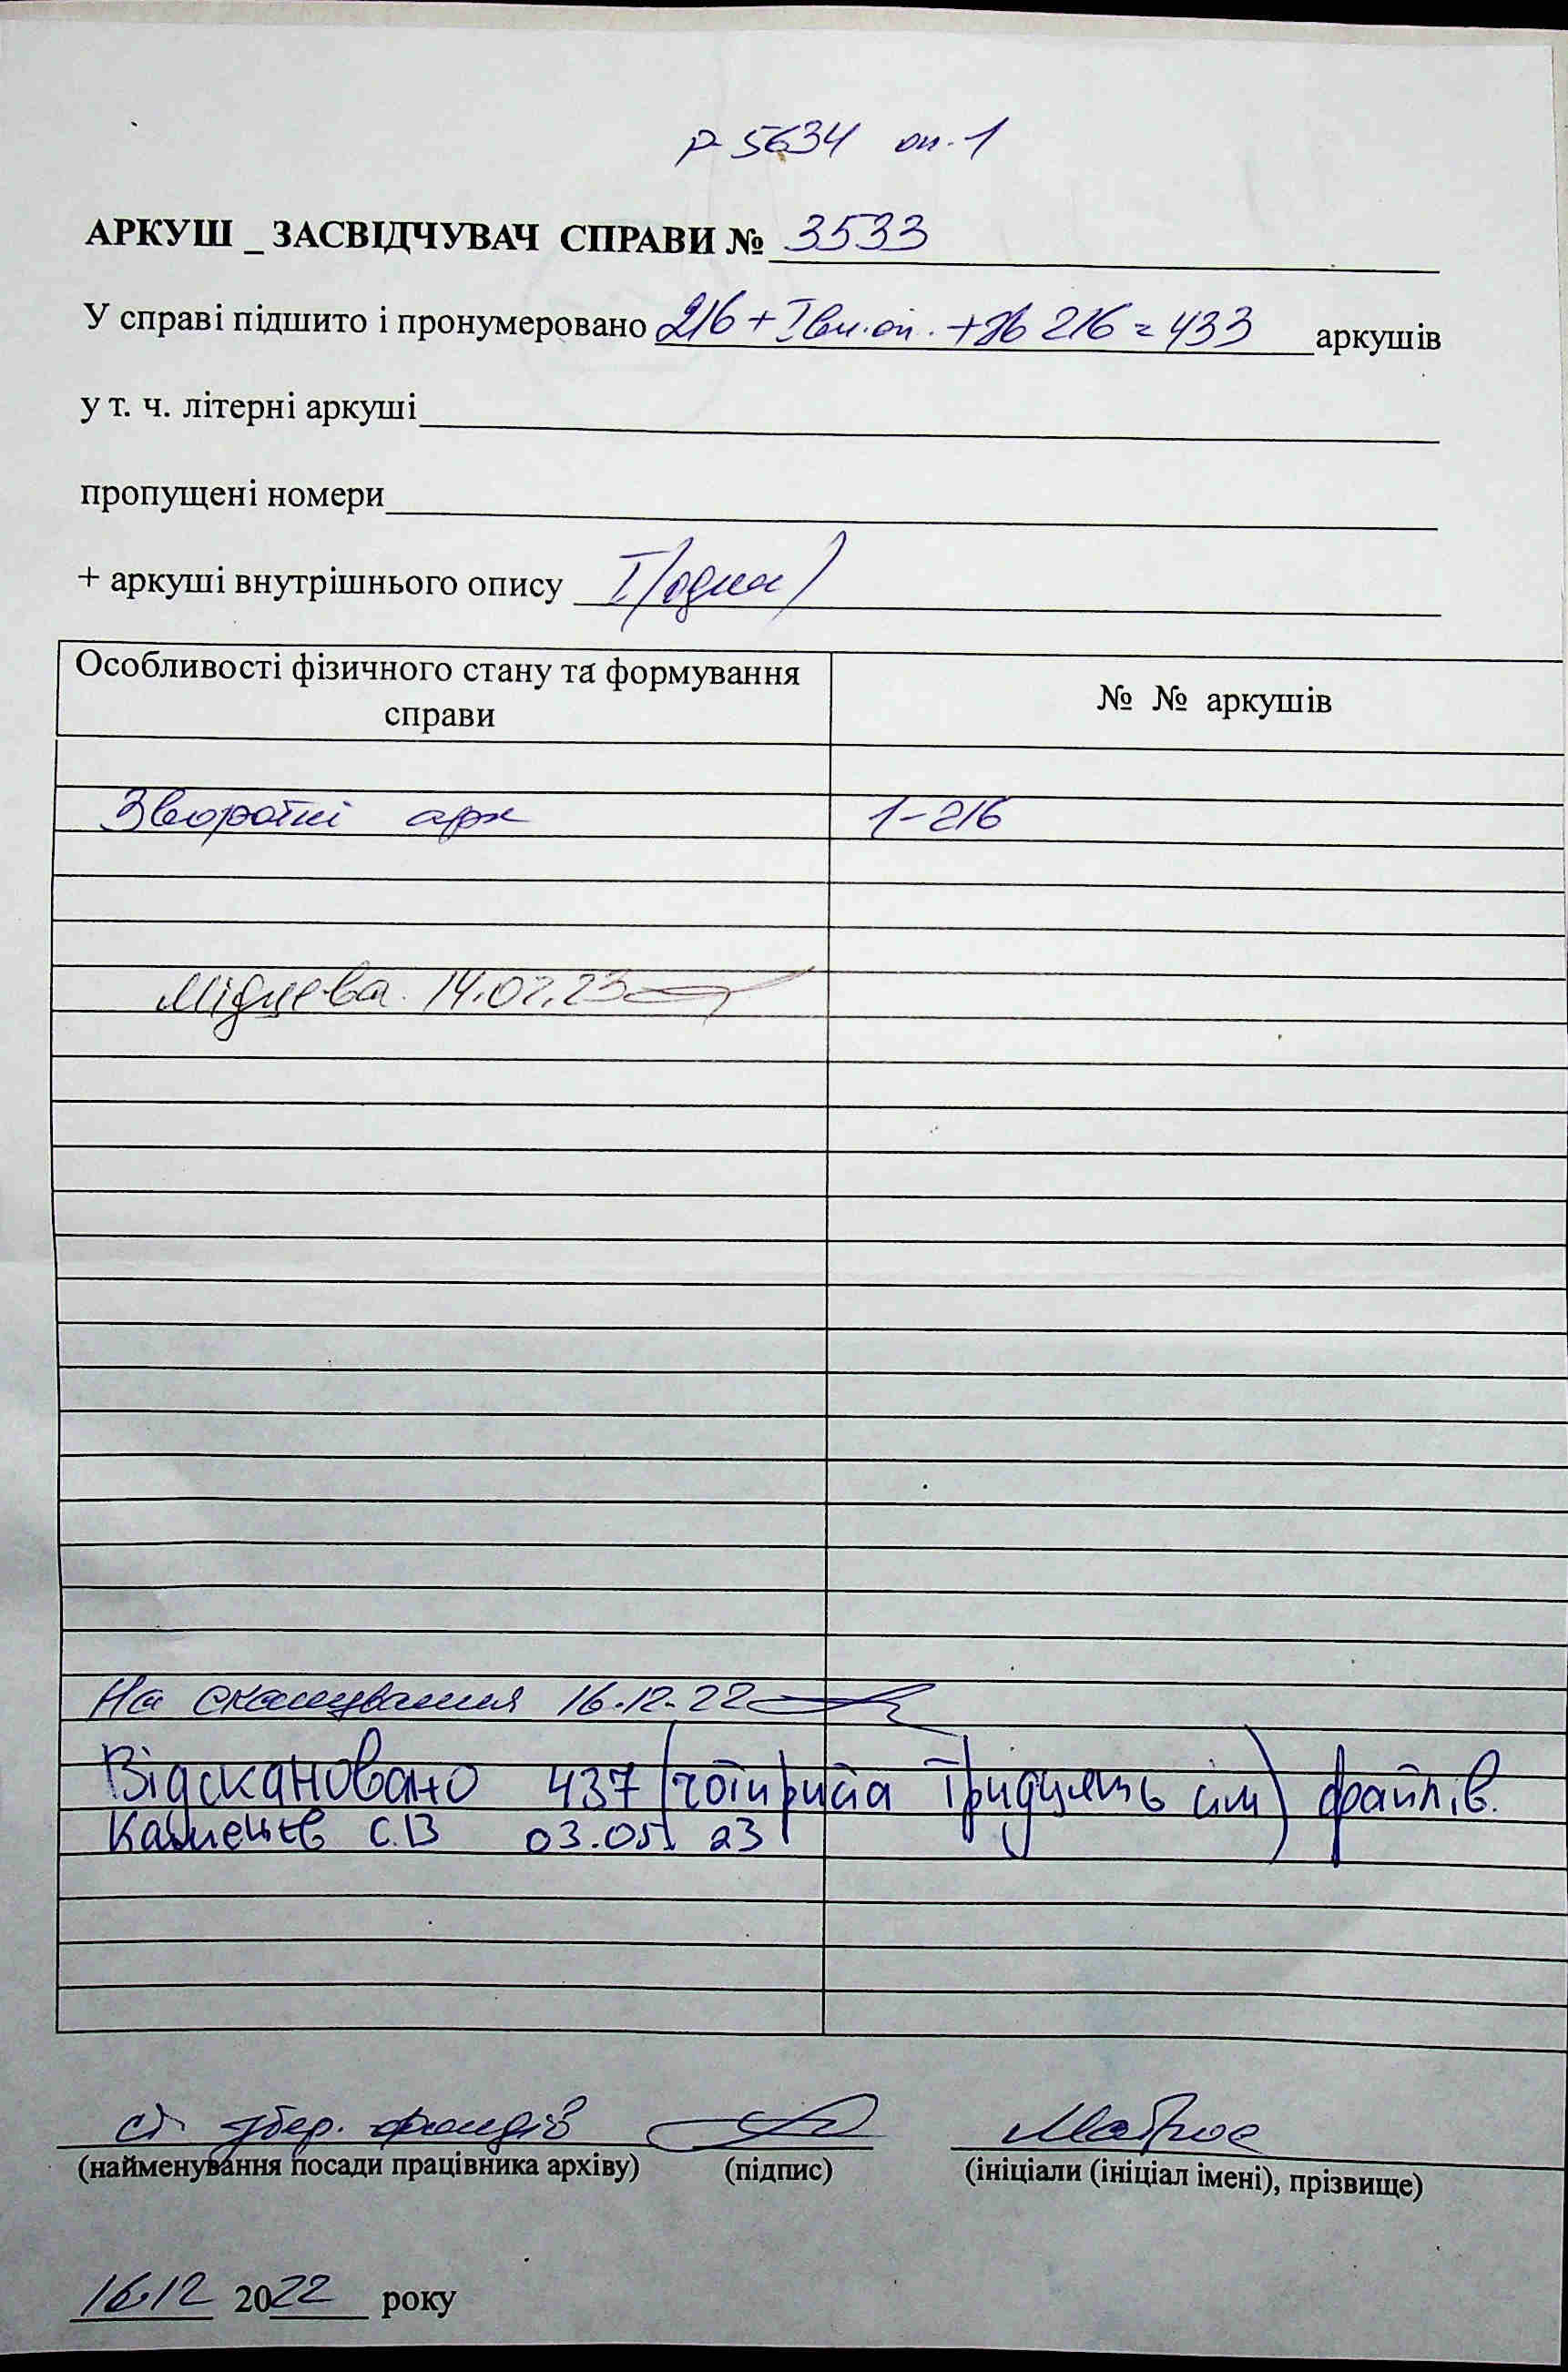 Р-5634 оп.1
АРКУШ _ ЗАСВІДЧУВАЧ СПРАВИ № 3533
У справі підшито і пронумеровано 216 + I вн.оп. + зв 216 = 433 аркушів
у т. ч. літерні аркуші
пропущені номери
+ аркуші внутрішнього опису I (один)
Особливості фізичного стану та формування справи
№ № аркушів
Зворотні арк 1-216
14.02.23
На сканування 16.12.22
Відскановано 437 (чотириста тридцять сім) файлів.
С.В 03.05. 23
ст збер. фондів
(найменування посади працівника архіву) (підпис) (ініціали (ініціал імені), прізвище)
16.12 2022 року